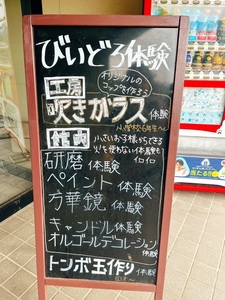 びいどろ体験
工房
オリジナルの
コップを作ろう
吹きガラス体験
小学校6年生〜
館内
小さいお子様からできる
火を使わない体験も
イロイロ
研磨体験
ペイント体験
万華鏡体験
キャンドル体験
オルゴールデコレーション
体験
トンボ玉作り体験
当たる!!